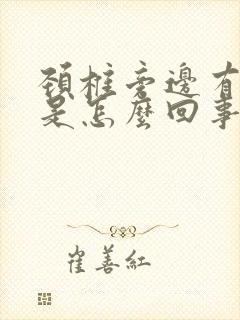 頸椎旁邊有
是怎麼回事
崔善紅